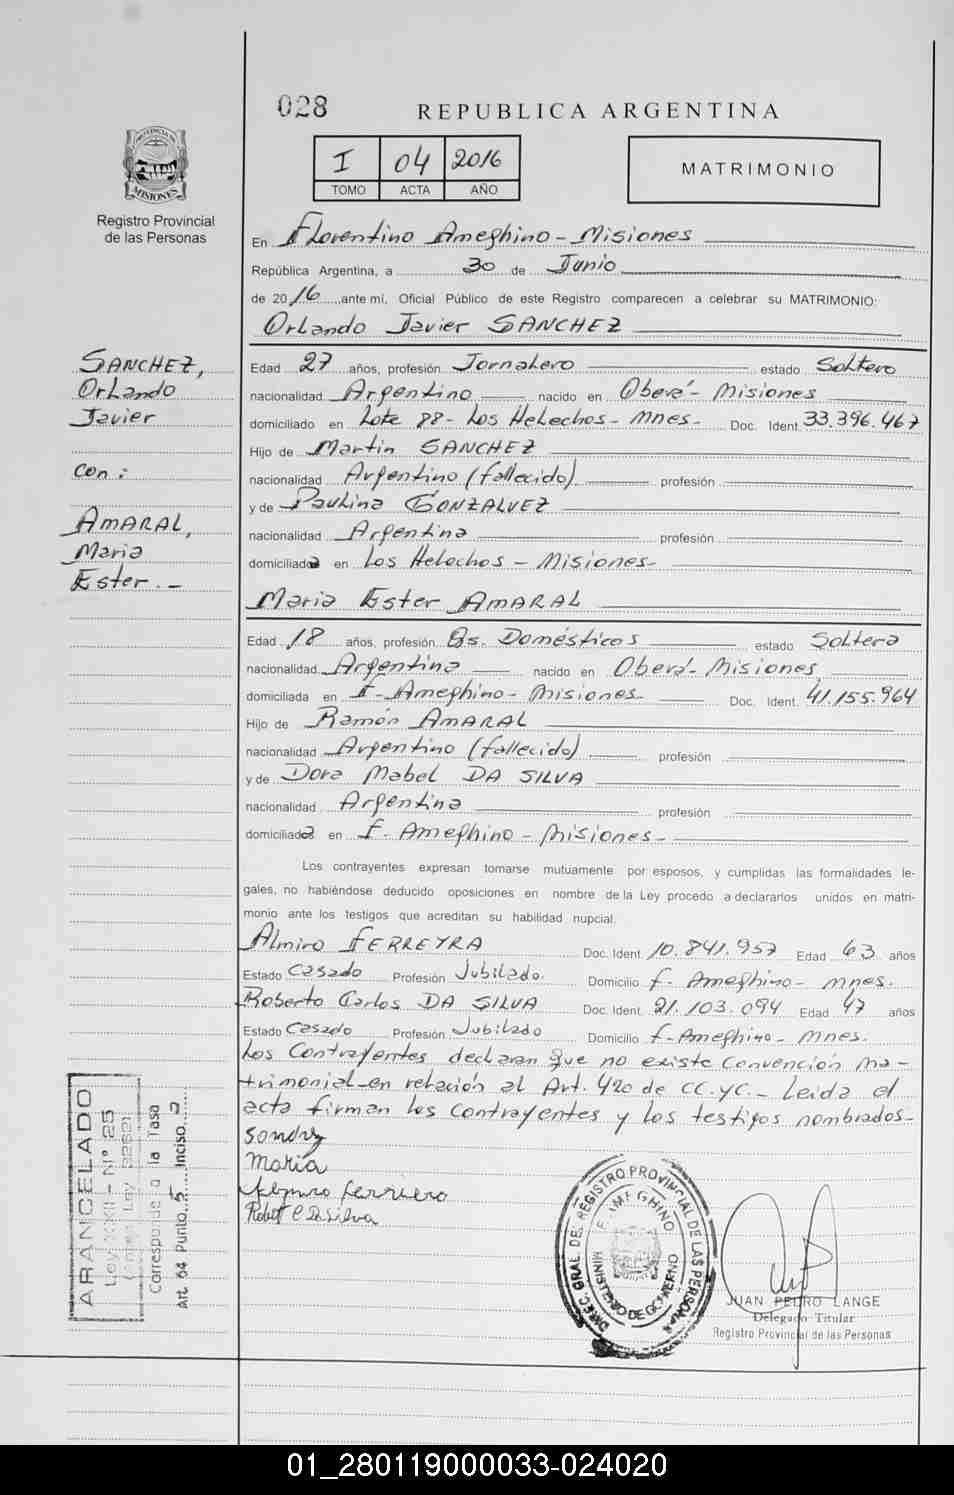 028
REPUBLICA ARGENTINA
I 04 2016
TOMO ACTA AÑO
MATRIMONIO
PROVINCIA DE
MISIONES
Registro Provincial
de las Personas
En Florentino Ameghino - Misiones
República Argentina, a 30 de Junio
de 2016 ante mí, Oficial Público de este Registro comparecen a celebrar su MATRIMONIO:
Orlando Javier SANCHEZ
SANCHEZ,
Orlando
Javier
con:
AMARAL,
Maria
Ester.-
Edad 27 años, profesión Jornalero estado Soltero
nacionalidad Argentino nacido en Oberá - Misiones
domiciliado en Lote 88 - Los Helechos - Mnes - Doc. Ident. 33.396.467
Hijo de Martin SANCHEZ
nacionalidad Argentino (fallecido) profesión
y de Paulina GONZALVEZ
nacionalidad Argentina profesión
domiciliada en Los Helechos - Misiones -
Maria Ester AMARAL
Edad 18 años, profesión Qs. Domésticos estado Soltera
nacionalidad Argentina nacido en Oberá - Misiones
domiciliada en F. Ameghino - Misiones - Doc. Ident. 41.155.964
Hijo de Ramón AMARAL
nacionalidad Argentino (fallecido) profesión
y de Dora Mabel DA SILVA
nacionalidad Argentina profesión
domiciliada en F. Ameghino - Misiones -
Los contrayentes expresan tomarse mutuamente por esposos, y cumplidas las formalidades le-
gales, no habiéndose deducido oposiciones en nombre de la Ley procedo a declararlos unidos en matri-
monio ante los testigos que acreditan su habilidad nupcial.
Almiro FERREYRA Doc. Ident. 10.841.957 Edad 63 años
Estado Casado Profesión Jubilado Domicilio F. Ameghino - Mnes.
Roberto Carlos DA SILVA Doc. Ident. 21.103.094 Edad 47 años
Estado Casado Profesión Jubilado Domicilio F. Ameghino - Mnes.
Los Contrayentes declaran que no existe Convención Ma-
trimonial en relación al Art. 420 de CC.yC.- Leida el
acta firman los contrayentes y los testigos nombrados-
Maria
ARANCELADO
Ley XXII - N° 25
Corresponde a la Tasa
Art. 64 Punto 5 Inciso a
DIREC. GRAL. DEL REGISTRO PROVINCIAL DE LAS PERSONAS
F. AMEGHINO
MINISTERIO DE GOBIERNO
JUAN PEDRO LANGE
Delegado Titular
Registro Provincial de las Personas
01_280119000033-024020